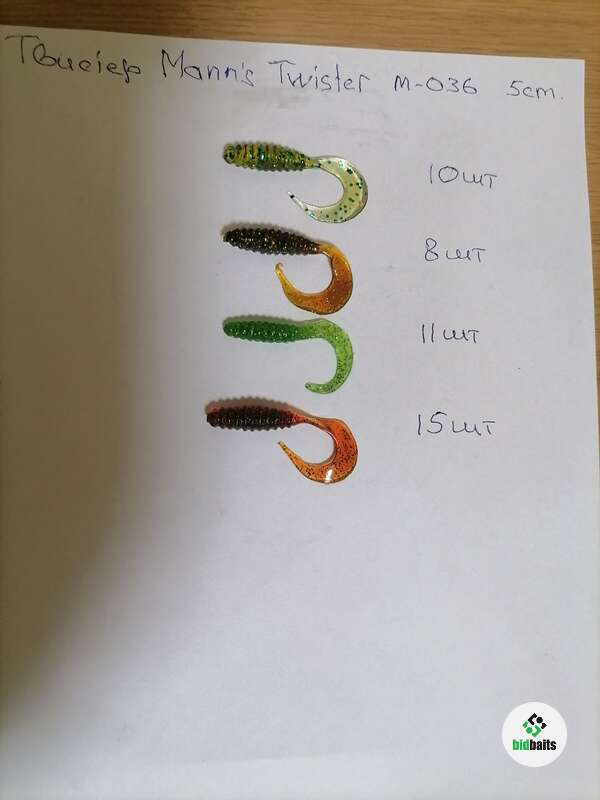 Твистер Mann's Twister M-036 5cm.
10шт
8шт
11шт
15шт
bidbaits